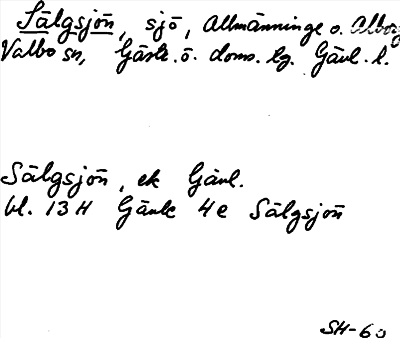 Sälgsjön, sjö, Allmänninge o. Alborg
Valbo sn, Gästr. ö. doms. lg. Gävl. l.
Sälgsjön, ek Gävl.
bl. 13 H Gävle 4 e Sälgsjön
SH-60